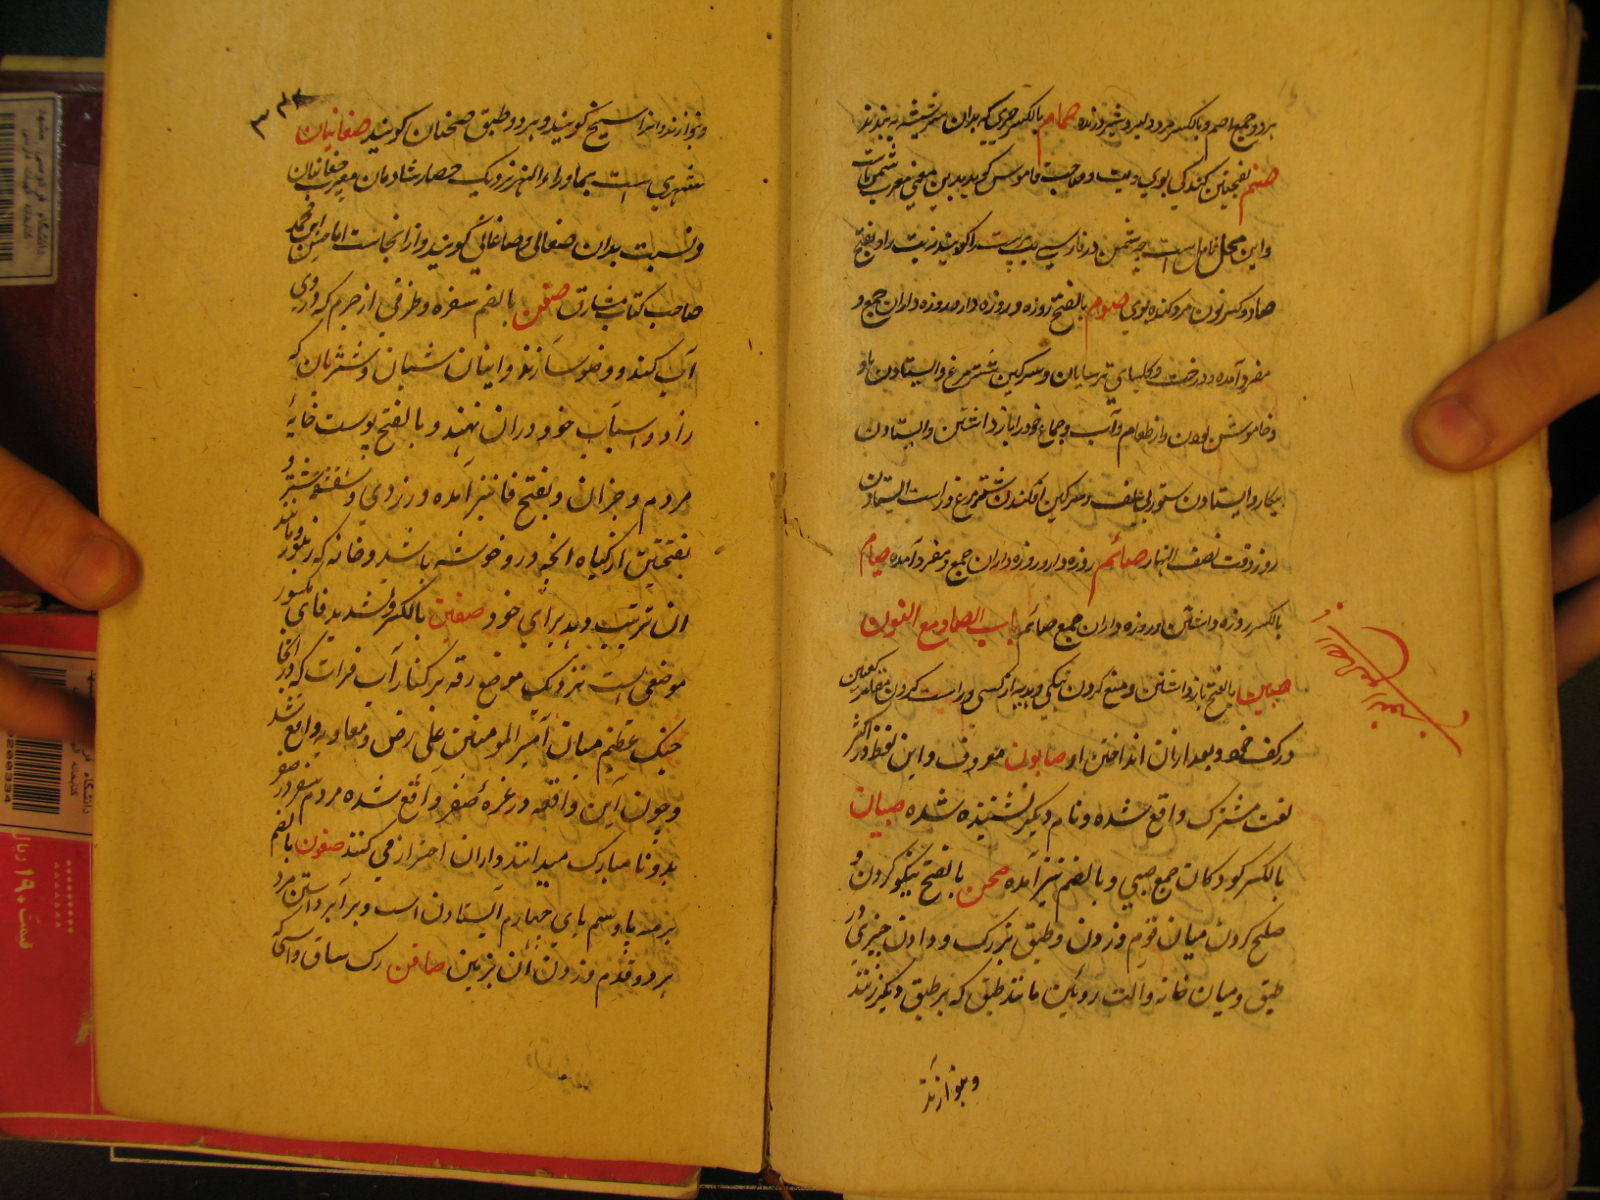 برد و جمع اصم و بالکسر مرد دلیر و شیر درنده صمام بالکسر چیزی که بدان سر شیشه به بندند
صنم بفتحتین کندگی بوی و بت و صاحب قاموس گوید بدین معنی معرب شمن است
و این محل تامل است چه شمن در فارسی بت پرست را گویند نه بت را و بفتح
صاد و کسر نون مرد کنده بوی صوم بالفتح روزه و روزه دار و روزه داران جمع و
مفرد آمده و درخت و کلیسای ترسایان و سرکین شتر مرغ و ایستادن باد
و خاموش بودن و از طعام و آب و جماع خود را باز داشتن و ایستادن
بیکار و ایستادن ستور بی علف و سرکین افکندن شتر مرغ و راست ایستادن
روز وقت نصف النهار صائم روزه دار و روزه داران جمع و مفرد آمده صیام
بالکسر روزه داشتن و روزه داران جمع صائم باب الصاد مع النون
صبن بالفتح باز داشتن و منع کردن نیکی و هدیه از کسی و راست کردن مقامر کعبتین
در کف خود و بعد از آن انداختن او صابون معروف و این لفظ در اکثر
لغت مشترک واقع شده و نام دیگر نشنیده شده صبیان
بالکسر کودکان جمع صبی و بالضم نیز آمده صحن بالفتح نیکو کردن و
صلح کردن میان قوم و زدن و طبق بزرگ و دادن چیزی در
طبق و میان خانه و آلت روئین مانند طبق که بر طبق دیگر زنند
و بنوازند
باب الصاد مع النون
۳۴۳
و بنوازند و آنرا سنج گویند و هر دو طبق را صحنان گویند صغانیان
شهری است بماوراء النهر نزدیک حصار شادمان معرب چغانیان
و نسبت بدان صغانی و صاغانی گویند و از آنجاست امام حسن ابن محمد
صاحب کتاب مشارق صفن بالضم سفره و ظرفی از چرم که در وی
آب کنند و وضو سازند و انبان شبان و شتربان که
زاد و اسباب خود در آن نهند و بالفتح پوست خایهٔ
مردم و جز آن و بفتح فا نیز آمده و رزدی و شقشقه شتر و
بفتحتین از گیاه آنچه در و خوشه باشد و خانه که زنبور و مانند
آن ترتیب دهد برای خود صفین بالکسر و تشدید فای مکسور
موضعی است نزدیک موضع رقه بر کنار آب فرات که در آنجا
جنگ عظیم میان امیر المومنین علی رض و معاویه واقع شد
و چون این واقعه در غرهٔ صفر واقع شده مردم سفر در صفر
بد و نامبارک میدانند و از آن احتراز می کنند صفون بالضم
بر سه پا و سم پای چهارم ایستادن اسب و برابر داشتن مرد
هر دو قدم و زدن آن بزمین صافن رک ساق و اسپی که